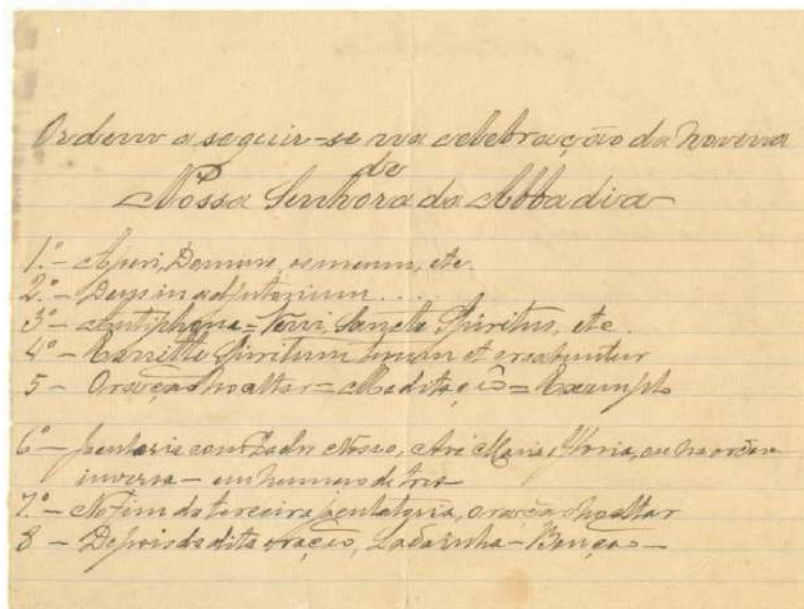 Ordem a seguir-se na celebração da novena
de
Nossa Senhora da Abbadia
1.º - Aperi, Domine, os meum, etc.
2.º - Deus in adjutorium . . . .
3.º - Antiphona = Veni, Sancte Spiritus, etc.
4.º - Emitte Spiritum tuum et creabuntur
5 - Oração no altar = Meditação = Exemplo
6.º - com Padre Nosso, Ave Maria, Gloria, ou na ordem
inversa - em numero de tres
7.º - No fim da terceira, oração no altar
8 - Depois da dita oração, Ladainha - Benção -